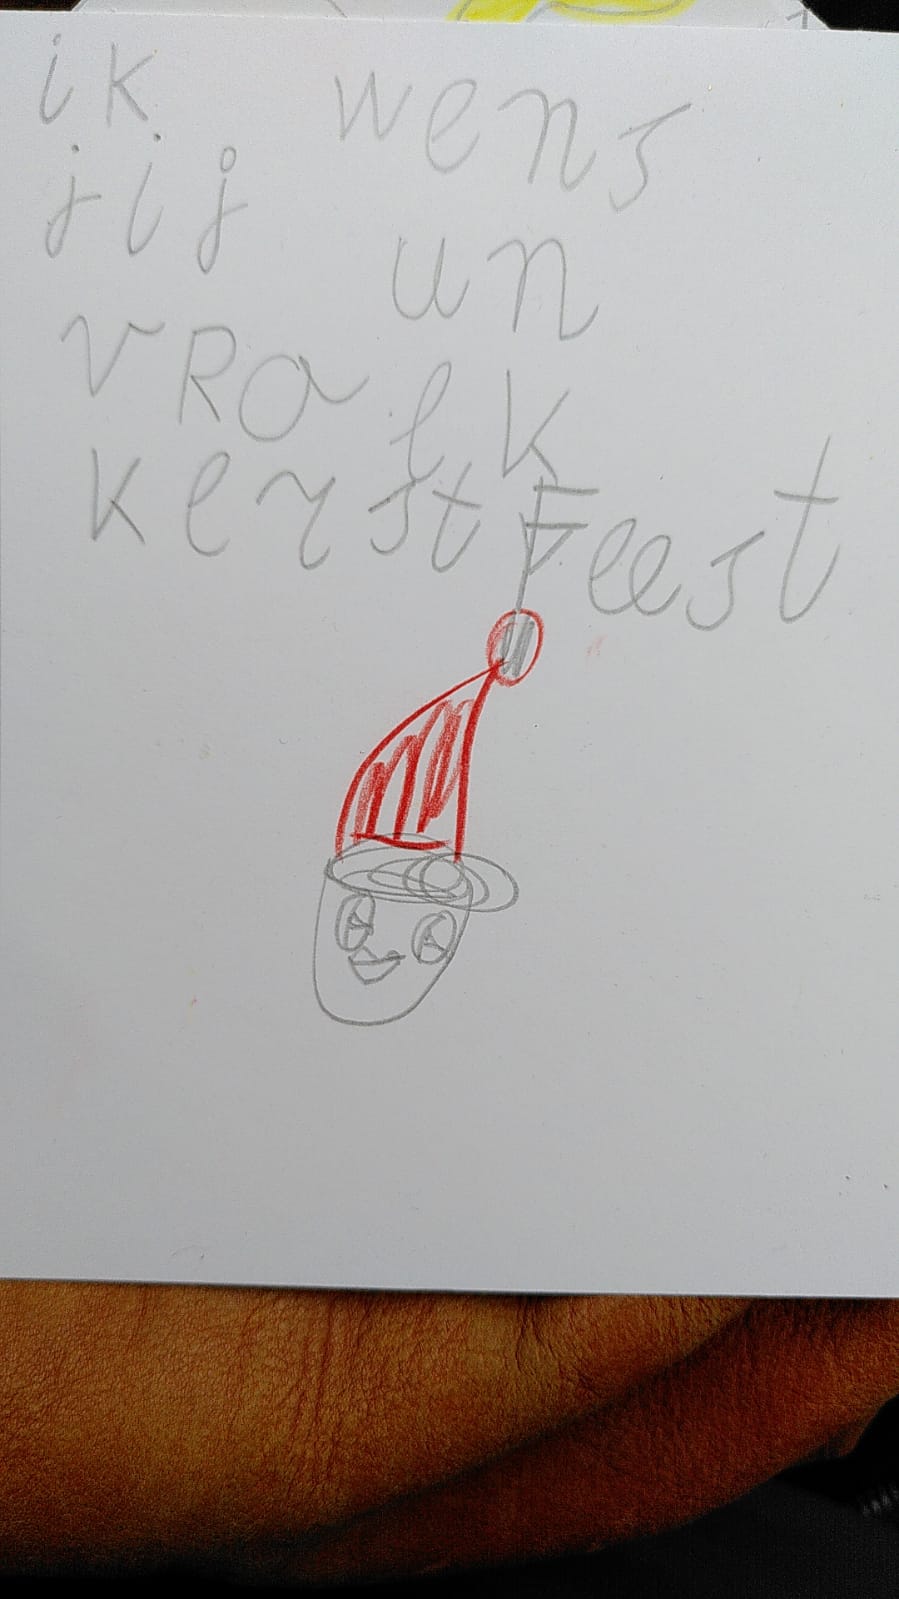 ik wens
jij un
vRolk
kerstFeest